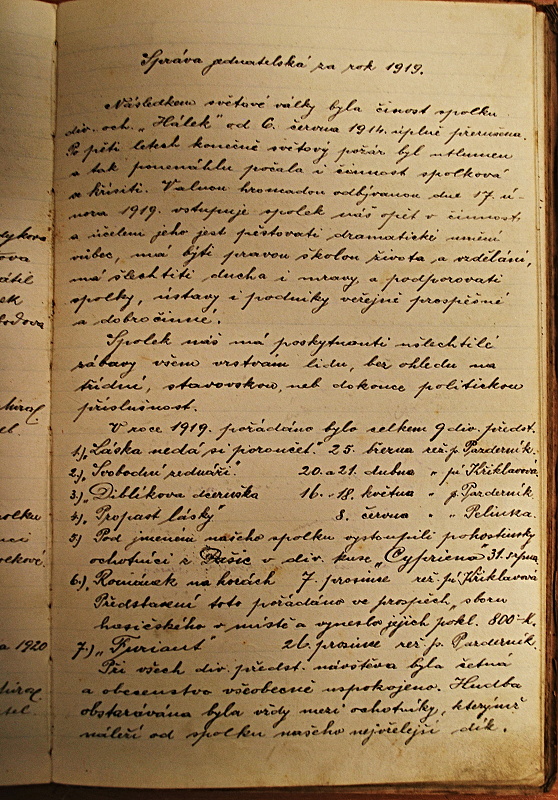 Správa jednatelská za rok 1919.
Následkem světové války byla činost spolku
div. och. „Hálek" od 6. června 1914 úplně přerušena.
Po pěti letech konečně světový požár byl utlumen
a tak ponenáhlu počala i činnost spolková
a křísiti. Valnou hromadou odbývanou dne 17. ú-
nora 1919. vstupuje spolek náš opět v činnost,
a účelem jeho jest pěstovati dramatické umění
vůbec, má býti pravou školou života a vzdělání,
má šlechtiti ducha i mravy, a podporovati
spolky, ústavy i podniky veřejně prospěšné
a dobročinné.
Spolek náš má poskytnouti ušlechtilé
zábavy všem vrstvám lidu, bez ohledu na
třídní, stavovskou, neb dokonce politickou
příslušnost.
V roce 1919. pořádáno bylo celkem 9 div. předst.
1.) „Láska nedá si poroučet." 25. března rež. p. Pazderník.
2.) „Svobodní zednáři." 20. a 21. dubna „ pí Křiklavová
3.) „Diblíkova dceruška 16. - 18. května „ p. Pazderník.
4.) „Propast lásky" 8. června „ Pelinka.
5.) Pod jménem našeho spolku vystoupili pohostinsky
ochotníci z v div. kuse „Cypriena 31. srpna
6.) „Románek na horách 7. prosince rež. pí Křiklavová
Představení toto pořádáno ve prospěch „sboru
hasičského v místě a vyneslo jejich pokl. 800 K.
7.) „Furiant" 26. prosince rež. p. Pazderník.
Při všech div. předst. návštěva byla četná
a obecenstvo všeobecně uspokojeno. Hudba
obstarávána byla vždy mezi ochotníky, kterýmž
náleží od spolku našeho nejvřelejší dík.
dyková
ova
átil
ek
a 1920